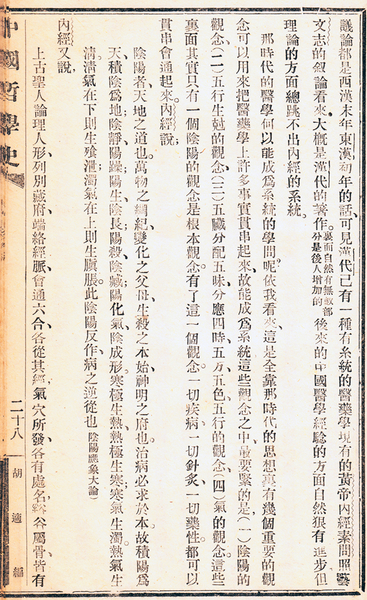 議論都是西漢末年東漢初年的話可見漢代已有一種有系統的醫藥學現有的黃帝內經素問照藝
文志的叙論看來大概是漢代的著作裏面自然有無數部分是後人增加的後來的中國醫學經驗的方面自然狠有進步但
理論的方面總跳不出內經的系統
那時代的醫學何以能成爲系統的學問呢依我看來這是全靠那時代的思想眞有幾個重要的觀
念可以用來把醫藥學上許多事實貫串起來故能成爲系統這些觀念之中最要緊的是(一)陰陽的
觀念(二)五行生尅的觀念(三)五臟分配五味分應四時五方五色五行的觀念(四)氣的觀念這些
裏面其實只有一個陰陽的觀念是根本觀念有了這一個觀念一切疾病一切針灸一切藥性都可以
貫串會通起來內經說
陰陽者天地之道也萬物之綱紀變化之父母生殺之本始神明之府也治病必求於本故積陽爲
天積陰爲地陰靜陽躁陽生陰長陽殺陰藏陽化氣陰成形寒極生熱熱極生寒寒氣生濁熱氣生
淸淸氣在下則生飧泄濁氣在上則生䐜脹此陰陽反作病之逆從也(陰陽應象大論)
內經又說
上古聖人論理人形列別藏府端絡經脈會通六合各從其經氣穴所發各有處名谿谷屬骨皆有
中國哲學史
二十八
胡適編